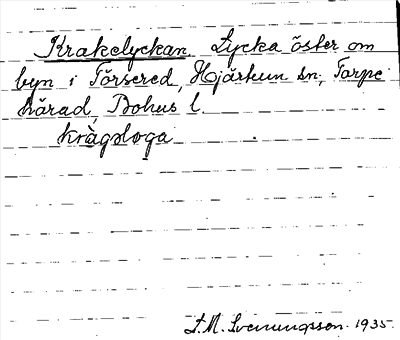 Krakelyckan. Lycka öster om
byn i Törsered, Hjärtum sn, Torpe
härad, Bohus l.
kràgslǫga
S. M. Svenungsson. 1935.